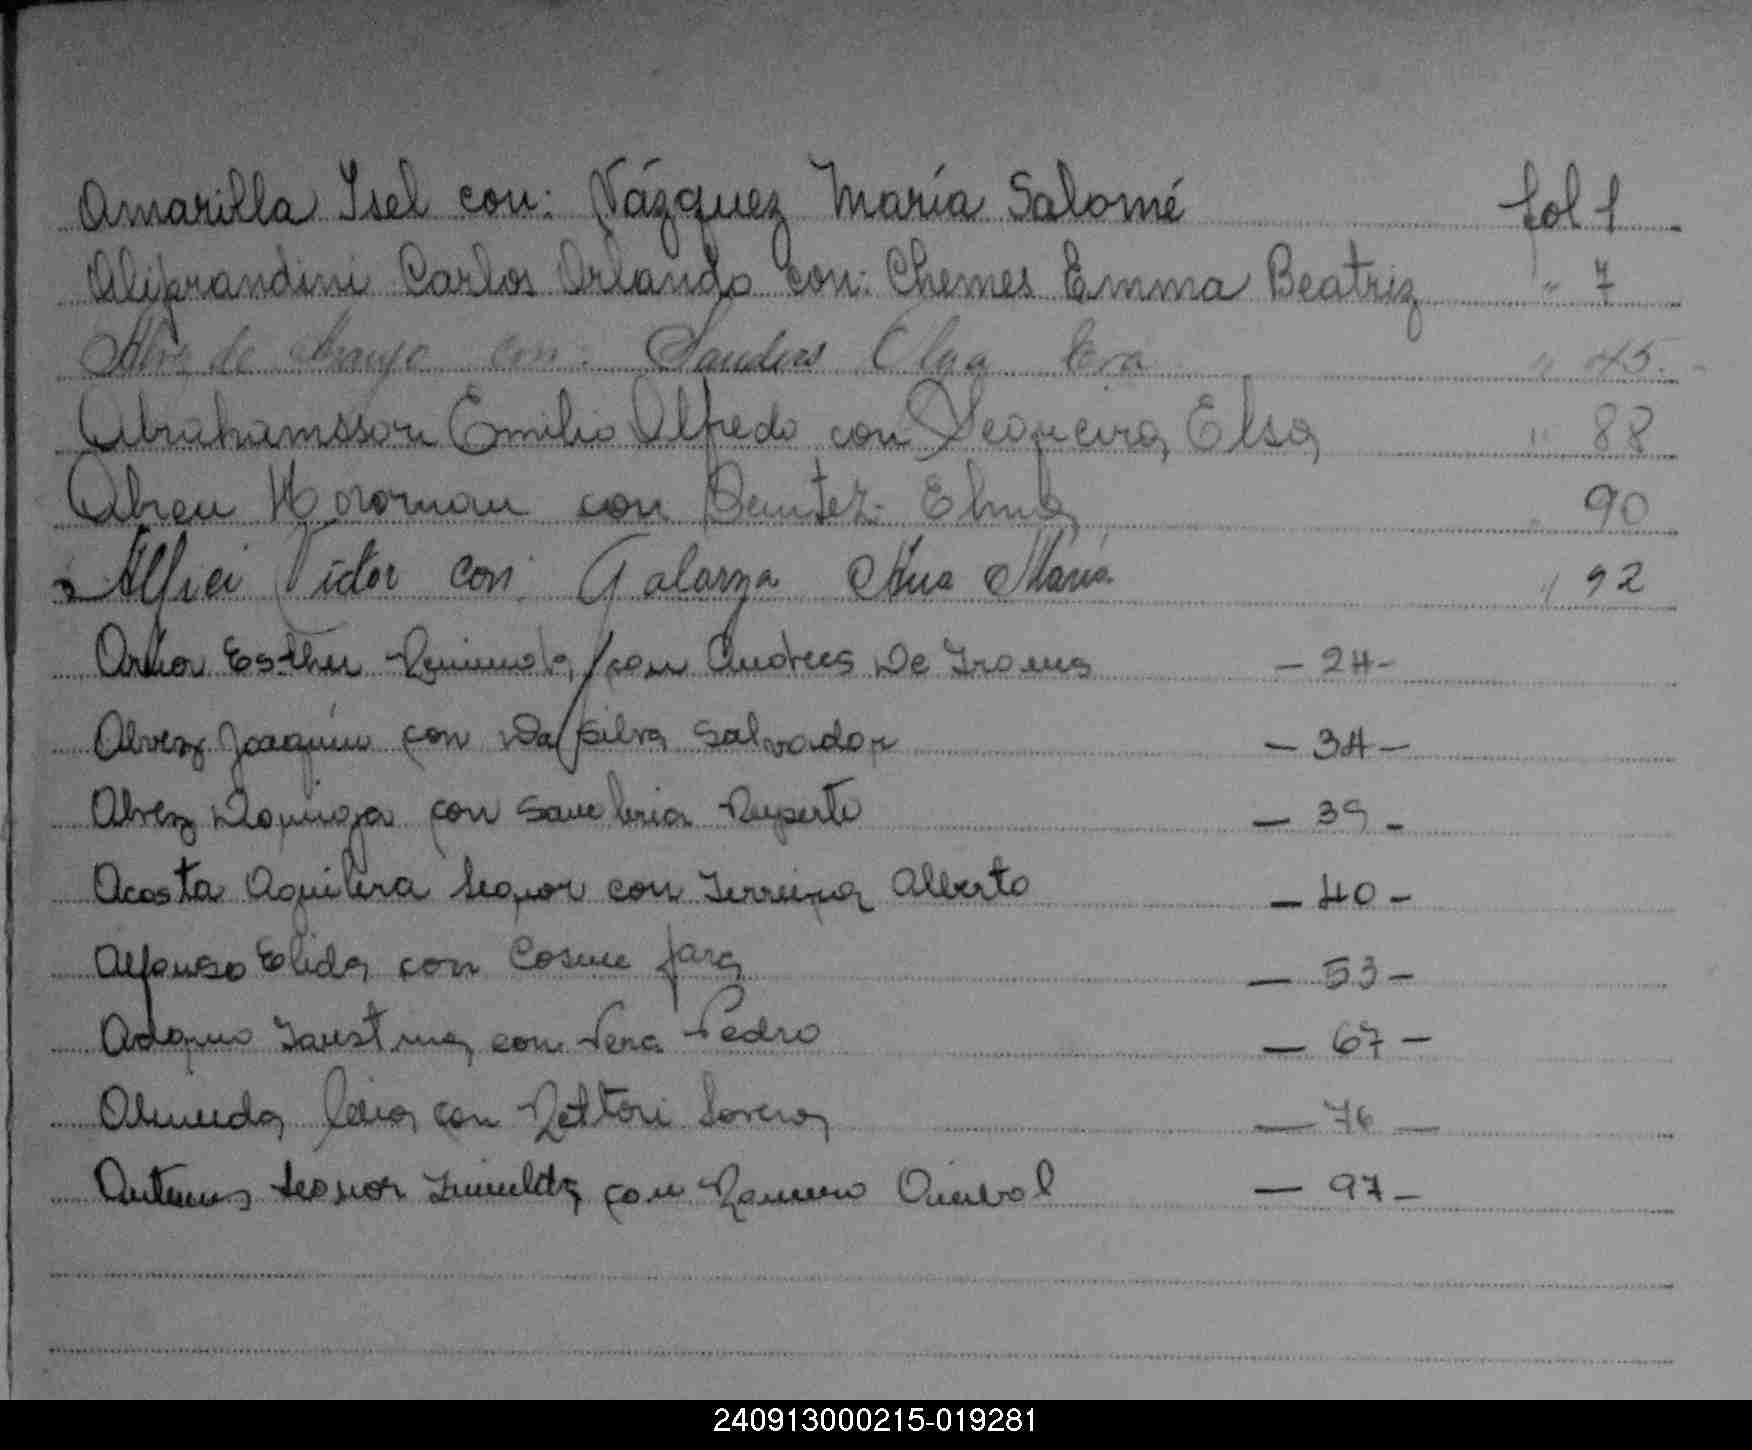 Amarilla Isel con: Vázquez María Salomé fol 1
Aliprandini Carlos Orlando con: Chemes Emma Beatriz " 7
de Araujo con: Sanders Olga Eva " 45.-
Abrahamsson Emilio Alfredo con Sequeira Elsa " 88
Abreu con Benitez Elma " 90
Alfiei Victor con: Galarza Ana María " 92
Esther con Andres De - 24 -
Alvez Joaquín con Da Silva Salvador - 34 -
Alvez con Ruperto - 39 -
Acosta Aguilera Leonor con Ferreira Alberto - 40 -
Alfonso Elida con Cosme Jara - 53 -
Adamo Faustina con Vera Pedro - 67 -
Almeida con - 76 -
Leonor Imelda con Romero Anibal - 97 -
240913000215-019281